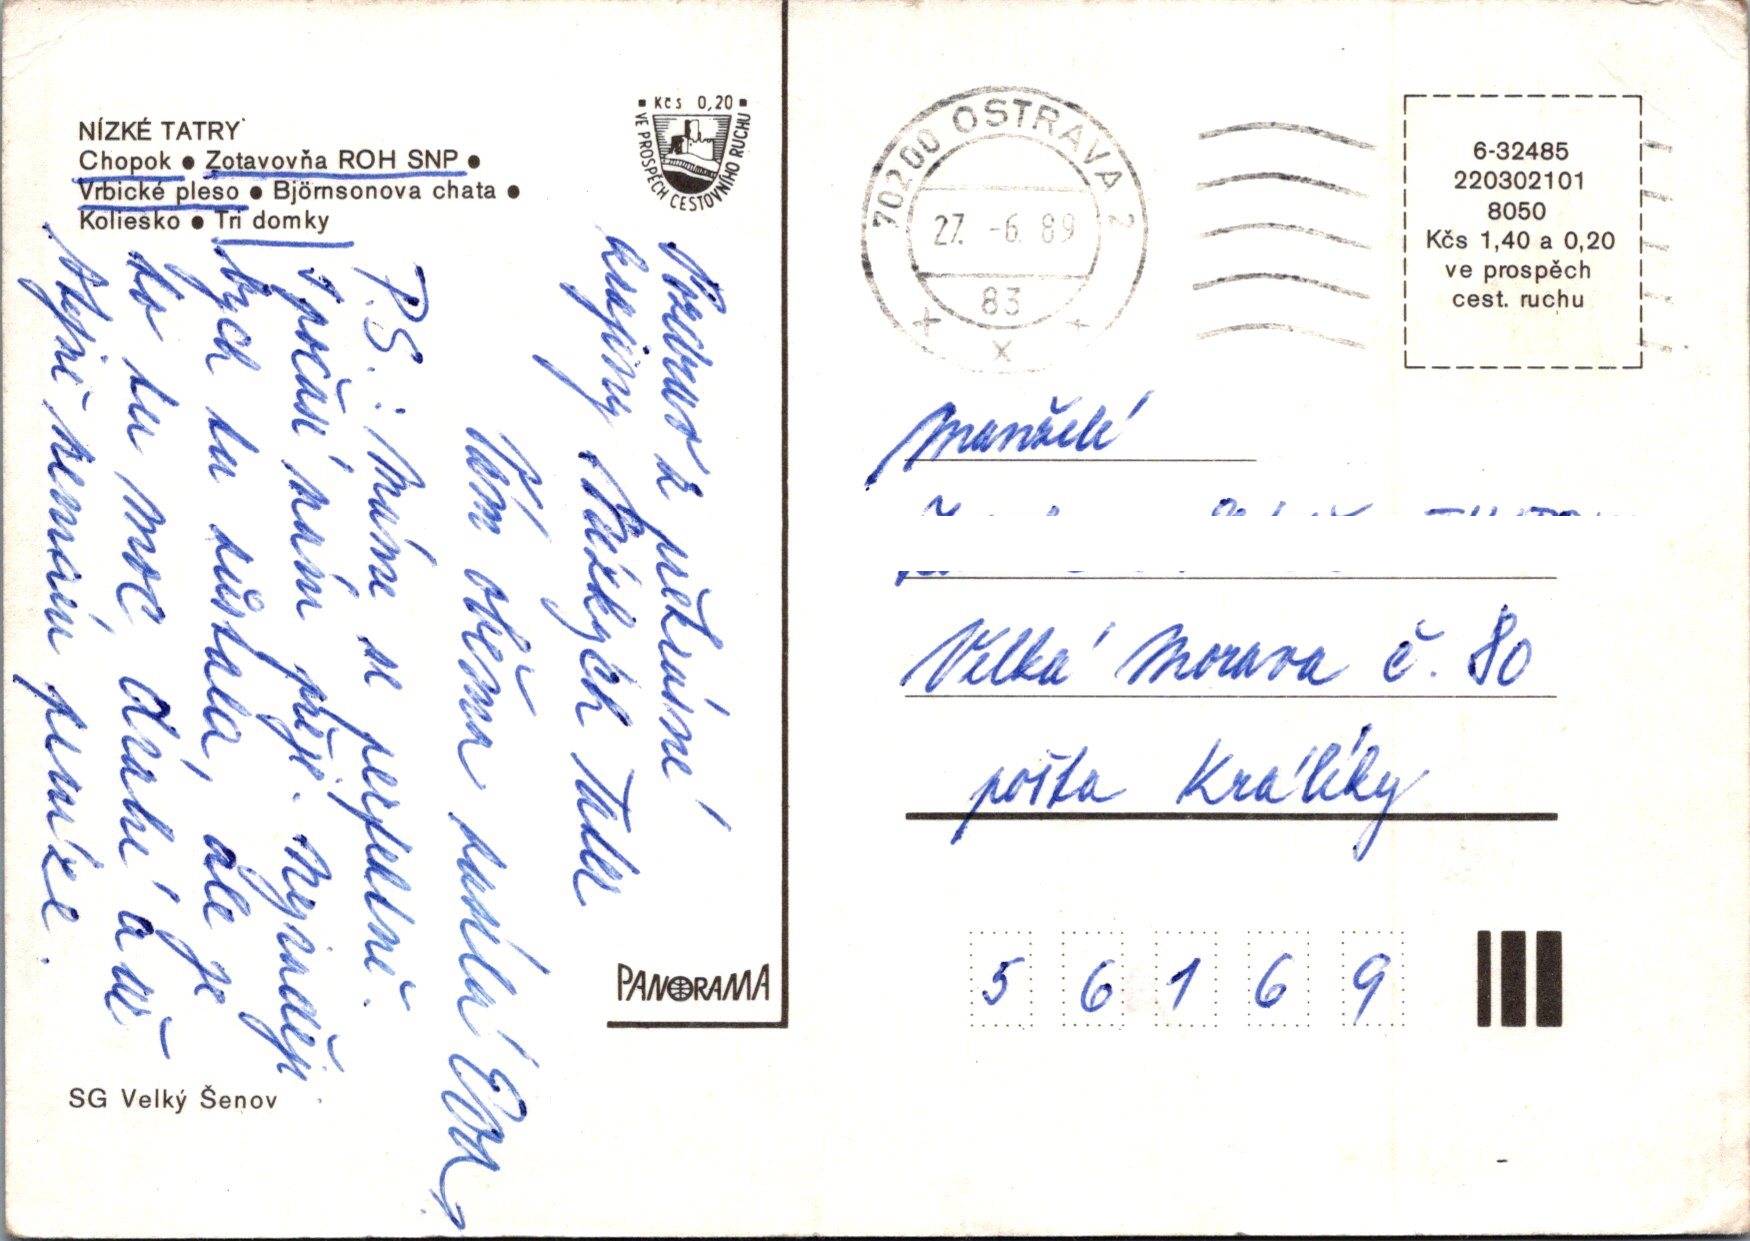 NÍZKÉ TATRY
Chopok ● Zotavovňa ROH SNP ●
Vrbické pleso ● Björnsonova chata ●
Koliesko ● Tri domky
Kčs 0,20
VE PROSPĚCH CESTOVNÍHO RUCHU
Pozdrav z překrásné
krajiny Nízkých Tater
Vám oběma zasílá
P.S.: Mám se perfektně.
I počasí nám přeje. Nejraději
bych tu zůstala, ale je
to tu moc drahé a už
stejně nemám peníze.
PANORAMA
SG Velký Šenov
70200 OSTRAVA 2
27. -6. 89
83
6-32485
220302101
8050
Kčs 1,40 a 0,20
ve prospěch
cest. ruchu
Manželé
Velká Morava č. 80
pošta Králíky
56169